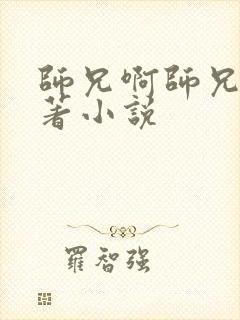 師兄啊師兄
著小説
羅智强